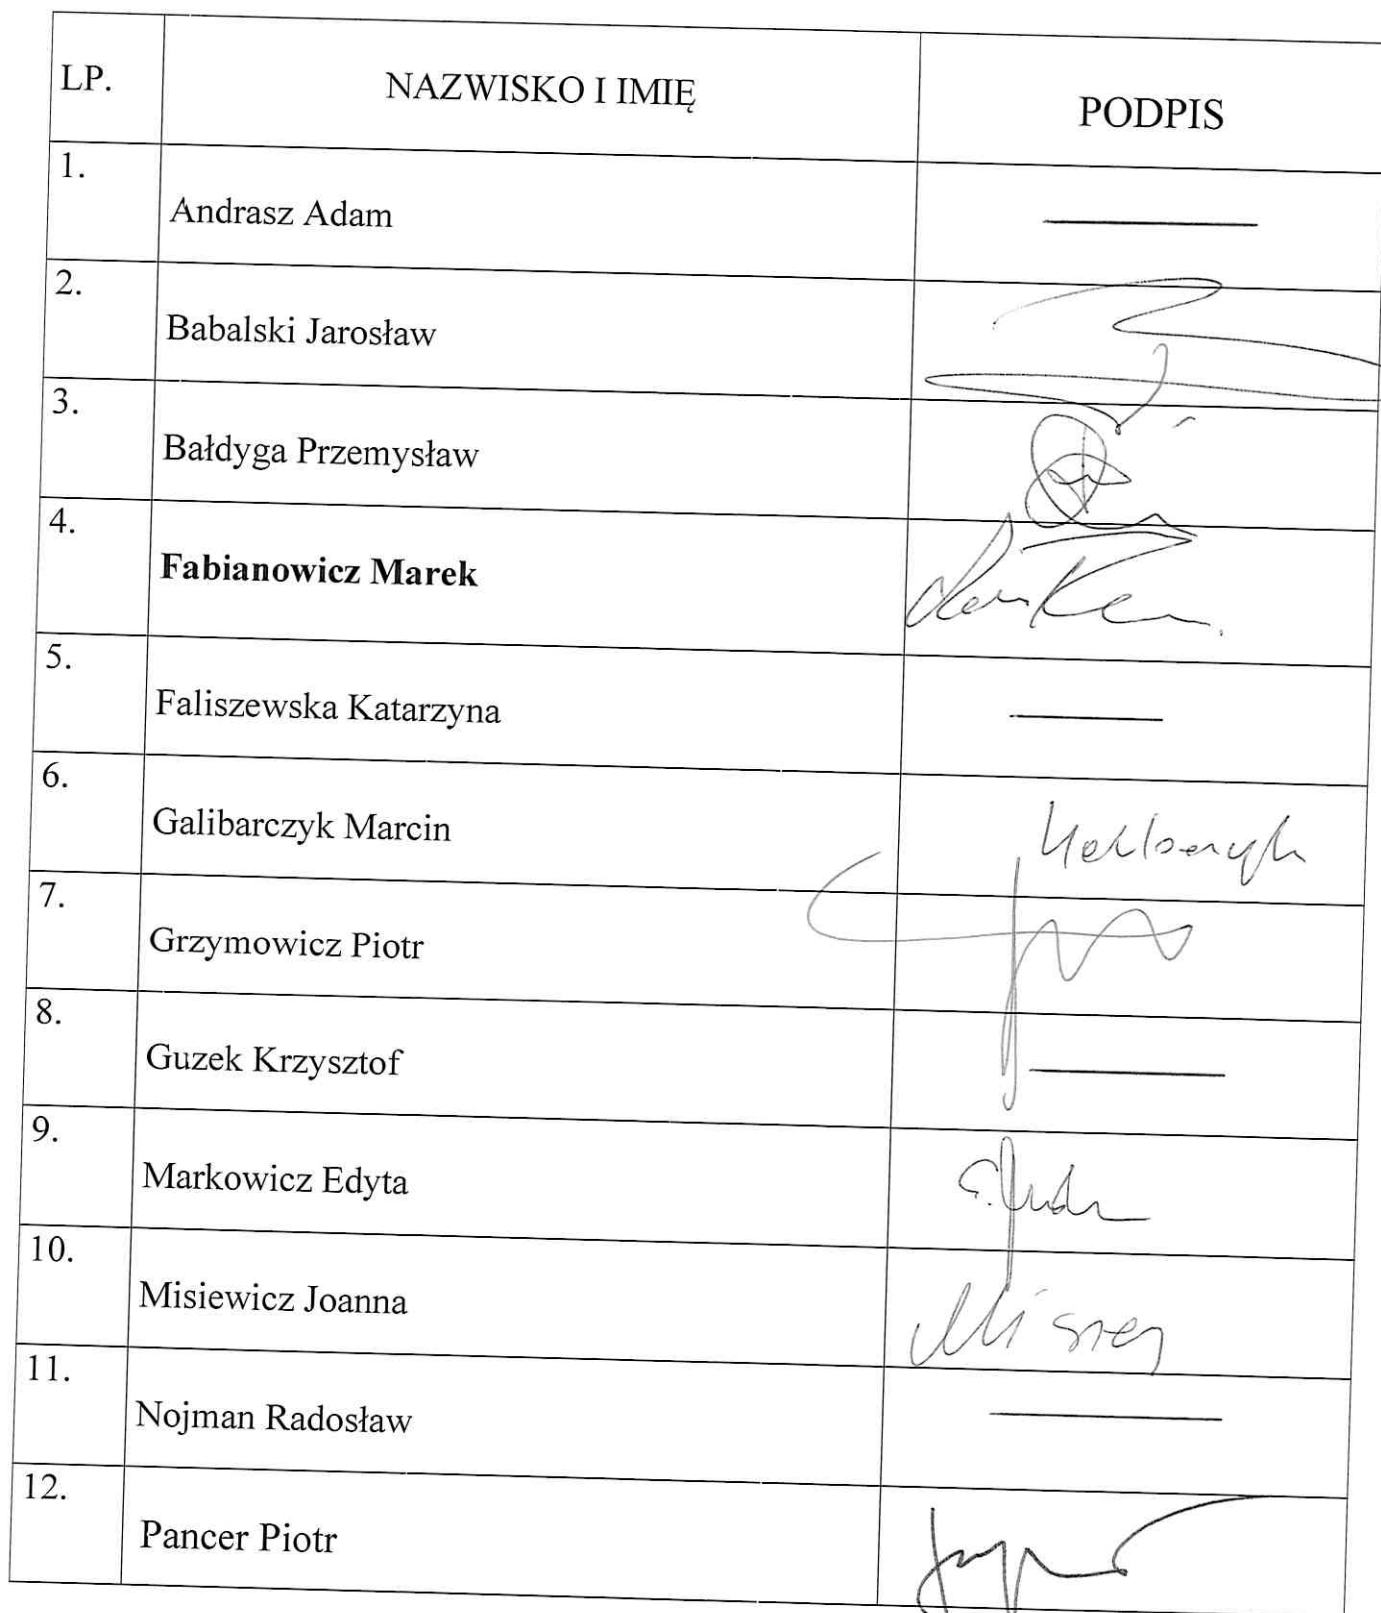 LP. NAZWISKO I IMIĘ PODPIS
1. Andrasz Adam
2. Babalski Jarosław
3. Bałdyga Przemysław
4. Fabianowicz Marek
5. Faliszewska Katarzyna
6. Galibarczyk Marcin
7. Grzymowicz Piotr
8. Guzek Krzysztof
9. Markowicz Edyta
10. Misiewicz Joanna
11. Nojman Radosław
12. Pancer Piotr